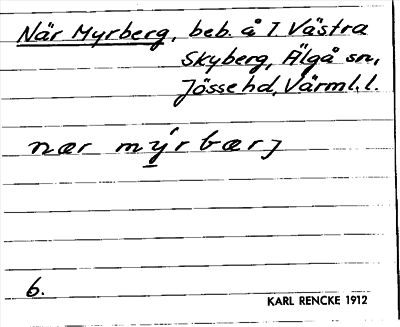 När Myrberg, beb. å 1 Västra
Skyberg, Älgå sn,
Jösse hd, Värml. l.
nær mýrbærj
6.
KARL RENCKE 1912